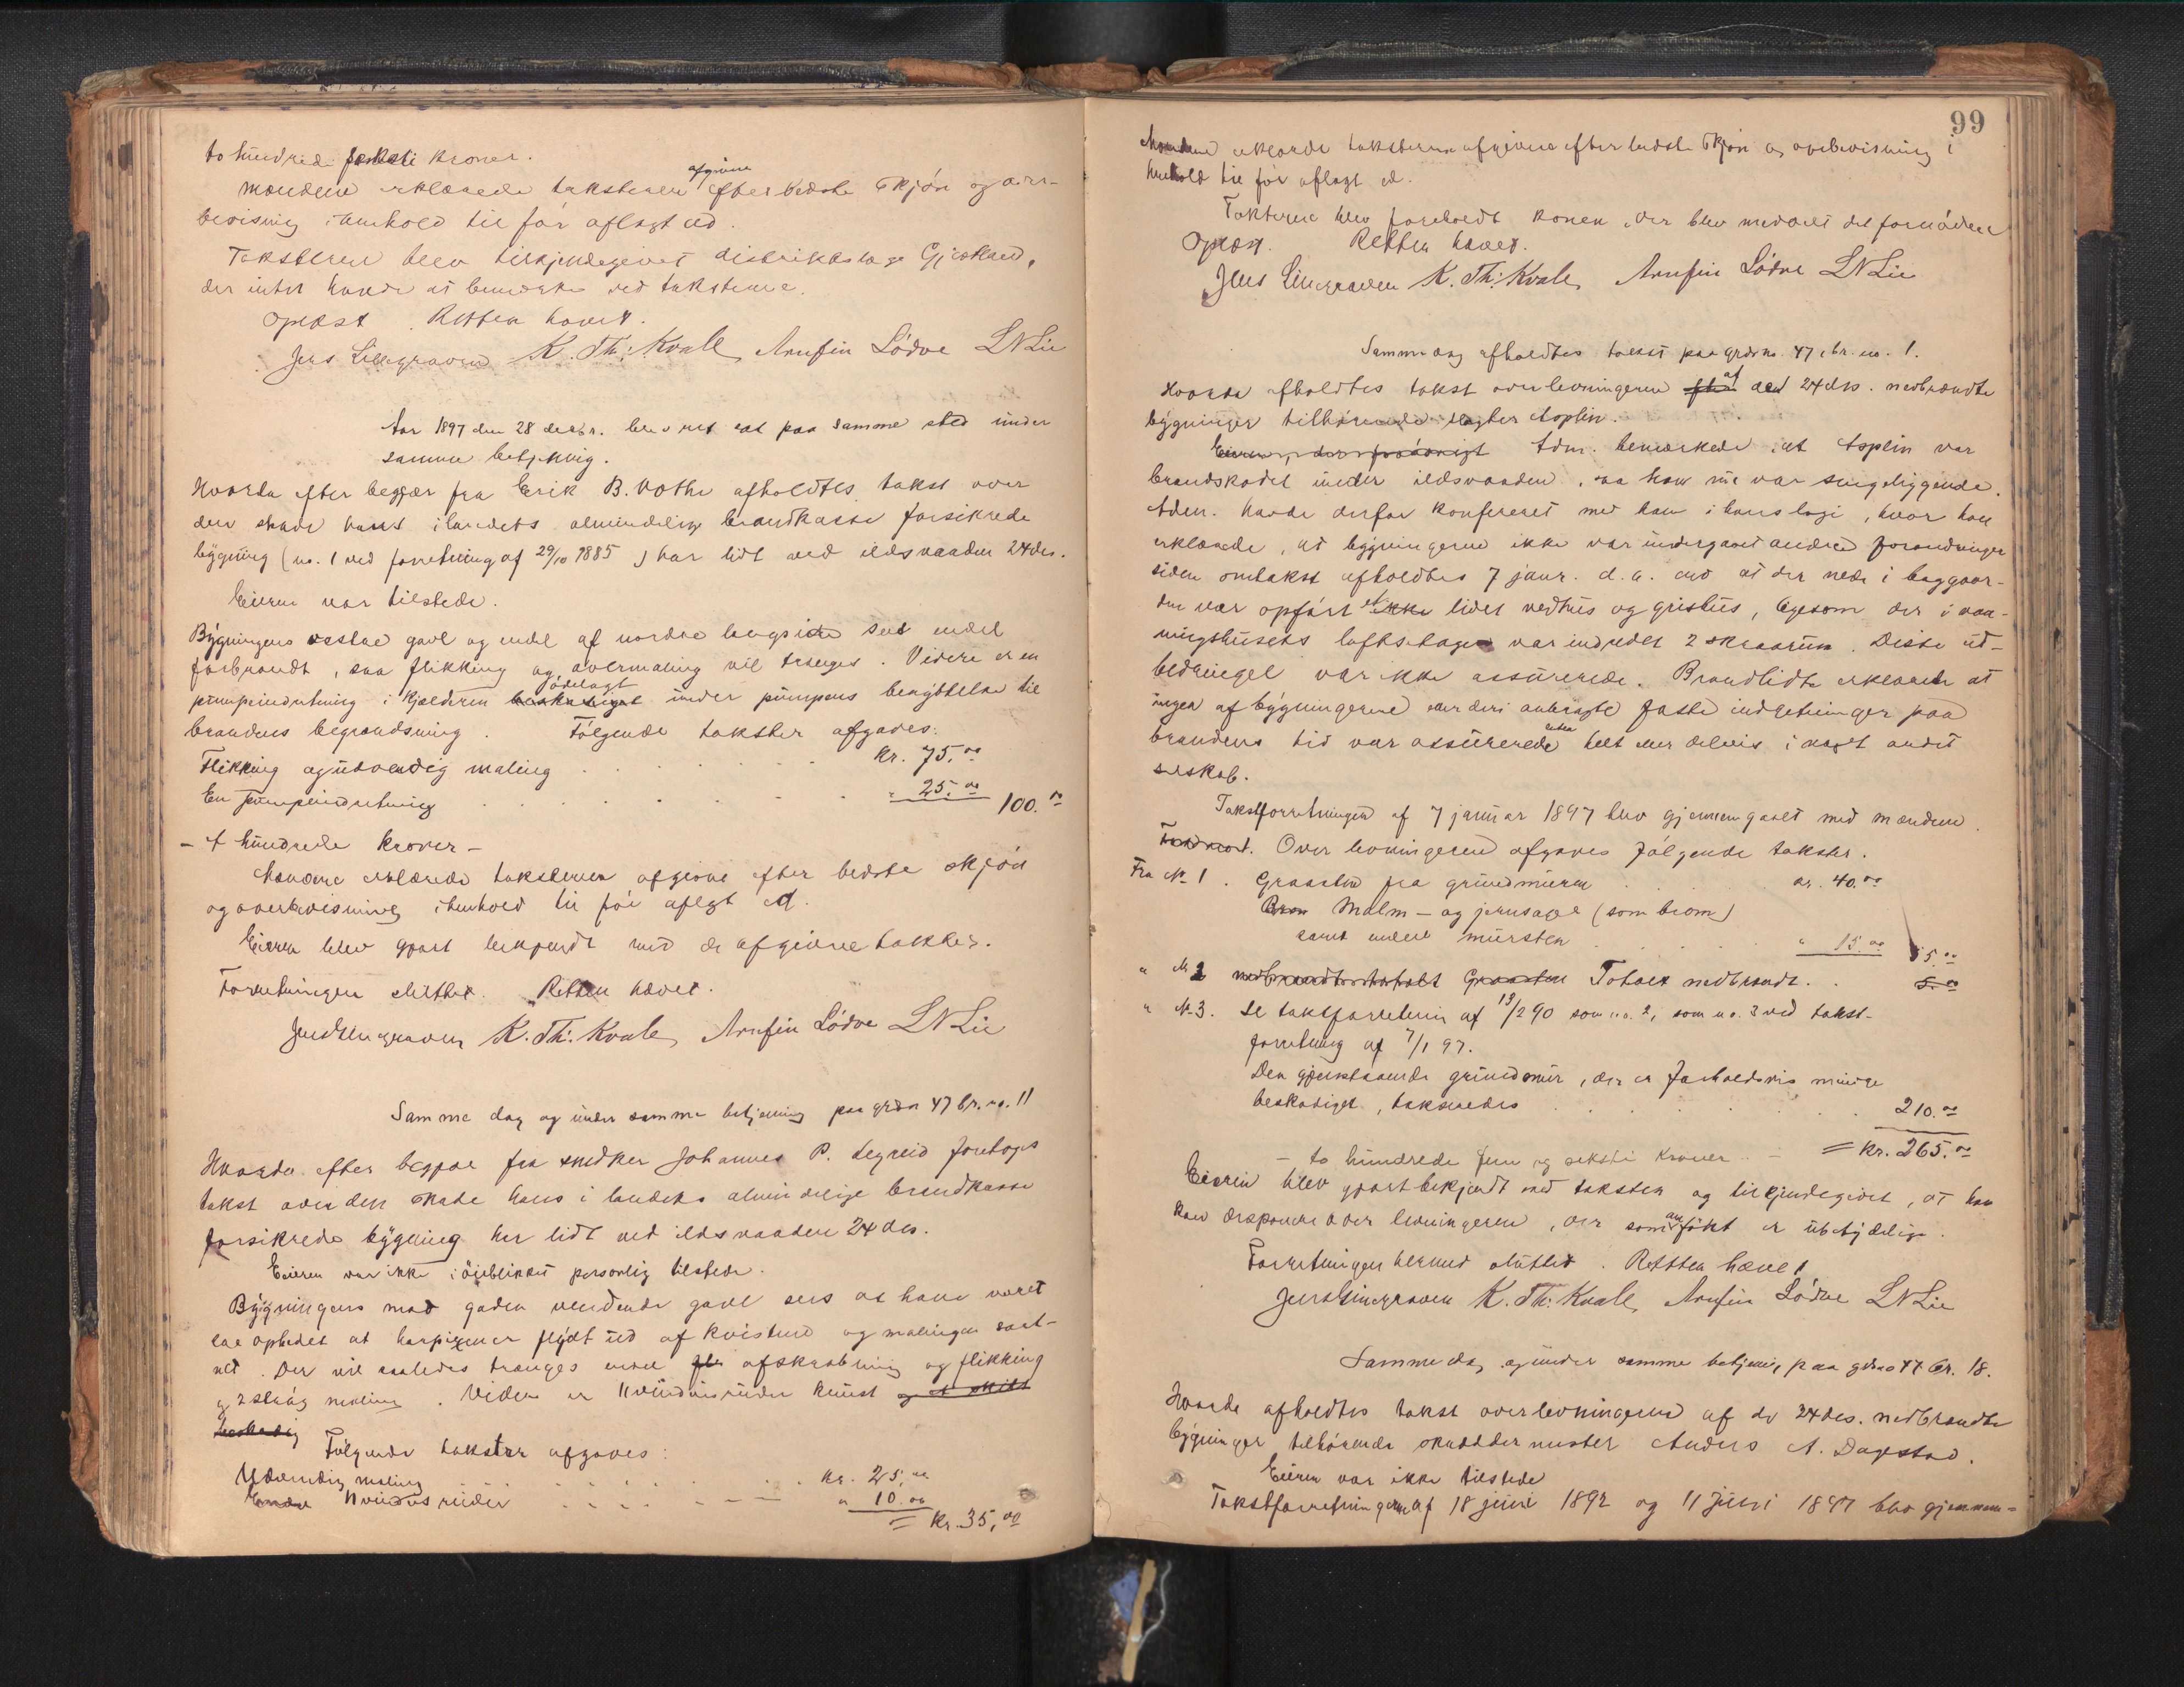 to hundrede seksti kroner.
Mændene erklærede taksterne afgivne efter bedste skjøn og over-
bevisning i henhold til før aflagt ed.
Taksterne blev tilkjendegivet distriktslæge Gjestland,
der intet havde at bemærke ved taksterne.
Oplæst. Retten hævet.
Jens Lillegraven K. Th: Kvale, Arnfin Lødve LNLie
Aar 1897 den 28 decbr. blev ret sat paa samme sted under
samme betjening.
Hvorda efter begjær fra Erik B. Rothe afholdtes takst over
den skade hans i landets almindelige brandkasse forsikrede
bygning (no. 1 ved forretning af 29/10 1885) har lidt ved ildsvaaden 24 des.
Eieren var tilstede.
Bygningens vestre gavl og endel af nordre langside sees endel
forbrændt, saa flikking og overmaling vil trænges. Videre er en
pumpeindretning i kjælderen beskadiget ødelagt under pumpens benyttelse til
brandens begrændsning. Følgende takster afgaves:
Flikking og udvendig maling kr. 75,00
En pumpeindretning " 25.00 100.00
- et hundrede kroner -
Mændene erklærede taksterne afgivne efter bedste skjøn
og overbevisning i henhold til før aflagt ed.
Eieren blev gjort bekjendt med de afgivne takster.
Forretningen sluttet. Retten hævet.
Jens Lillegraven K. Th: Kvale, Arnfin Lødve LNLie
Samme dag og under samme betjening paa grdsn 47 br. no. 11
Hvorda efter begjær fra snedker Johannes P. Legreid foretoges
takst over den skade hans i landets almindelige brandkasse
forsikrede bygning har lidt ved ildsvaaden 24 des.
Eieren var ikke i øieblikket personlig tilstede.
Bygningens mod gaden vendende gavl sees at have været
saa ophedet at harpixen er flydt ud af kvistene og malingen sort-
net. Der vil saaledes trænges endel afskrabning og flikking
og 2 slags maling. Videre er 11 vindusruder knust og et skilt
beskadig
Følgende takster afgaves:
Udvendig maling kr. 25,00
Endel 11 vindusruder " 10.00
= Kr. 35,00
99
Mændene erklærede taksterne afgivne efter bedste skjøn og overbevisning i
henhold til før aflagt ed.
Taksterne blev foreholdt konen, der blev meddelt det fornødne
Oplæst. Retten hævet.
Jens Lillegraven K. Th: Kvale, Arnfin Lødve LNLie
Samme dag afholdtes takst paa grdsno. 47, br. no. 1.
Hvorda afholdtes takst over levningerne af de 24 des. nedbrændte
bygninger tilhørende slagter Asplin.
Eieren, Adm. bemærkede at Asplin var
brandskadet under ildsvaaden, saa han nu var sengeliggende.
Adm. havde derfor konfereret med ham i hans logi, hvor han
erklærede, at bygningerne ikke var undergaaet andre forandringer
siden omtakst afholdtes 7 janr. d. a. end at der nede i baggaar-
den var opført et ikke lidet vedhus og grishus, ligesom der i vaa-
ningshusets loftsetage var indredet 2 skraarum. Disse ud-
bedringer var ikke assurerede. Brandlidte erklærede at
ingen af bygningerne eller deri anbragte faste indretninger paa
brandens tid var assurerede enten helt eller delvis i noget andet
selskab.
Takstforretningen af 7 januar 1897 blev gjennemgaaet med mændene.
Over levningerne afgaves følgende takster.
Fra No 1. Graasten fra grundmuren kr. 40.00
Malm- og jernsager (som brom)
samt endel mursten " 15.00 55.00
" No 2 nedbrændt Graasten Totalt nedbrændt. 5.00
" No 3. Se takstforretning af 13/2 90 som no. 2, som no. 3 ved takst-
forretning af 7/1 97.
Den gjenstaaende grundmur, der er forholdsvis mindre
beskadiget, takseredes 210.00
- to hundrede fem og seksti kroner - = kr. 265.00
Eieren blev gjort bekjendt med taksten og tilkjendegivet, at han
kan disponere over levningerne, der som anført er ubetydelige.
Forretningen hermed sluttet. Retten hævet
Jens Lillegraven K. Th: Kvale, Arnfin Lødve LNLie
Samme dag og under samme betjening paa gdsno 47 br. 18.
Hvorda afholdtes takst over levningerne af de 24 des. nedbrændte
bygninger tilhørende skræddermester Anders A. Dagestad.
Eieren var ikke tilstede
Takstforretningerne af 18 juni 1892 og 11 juni 1897 blev gjennem=